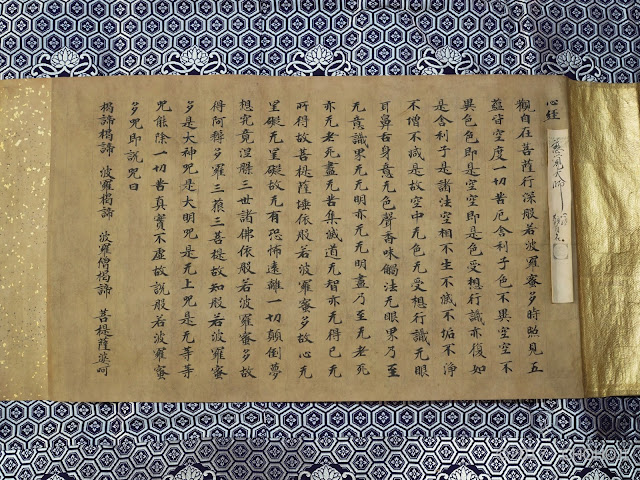 心經
觀自在菩薩行深般若波羅蜜多時照見五
蘊皆空度一切苦厄舍利子色不異空空不
異色色即是空空即是色受想行識亦復如
是舍利子是諸法空相不生不滅不垢不淨
不增不減是故空中无色无受想行識无眼
耳鼻舌身意无色聲香味觸法无眼界乃至
无意識界无无明亦无无明盡乃至无老死
亦无老死盡无苦集滅道无智亦无得已无
所得故菩提薩埵依般若波羅蜜多故心无
罣礙无罣礙故无有恐怖遠離一切顛倒夢
想究竟涅槃三世諸佛依般若波羅蜜多故
得阿耨多羅三藐三菩提故知般若波羅蜜
多是大神咒是大明咒是无上咒是无等等
咒能除一切苦真實不虛故說般若波羅蜜
多咒即說咒曰
揭諦揭諦 波羅揭諦 波羅僧揭諦 菩提薩婆呵
大師